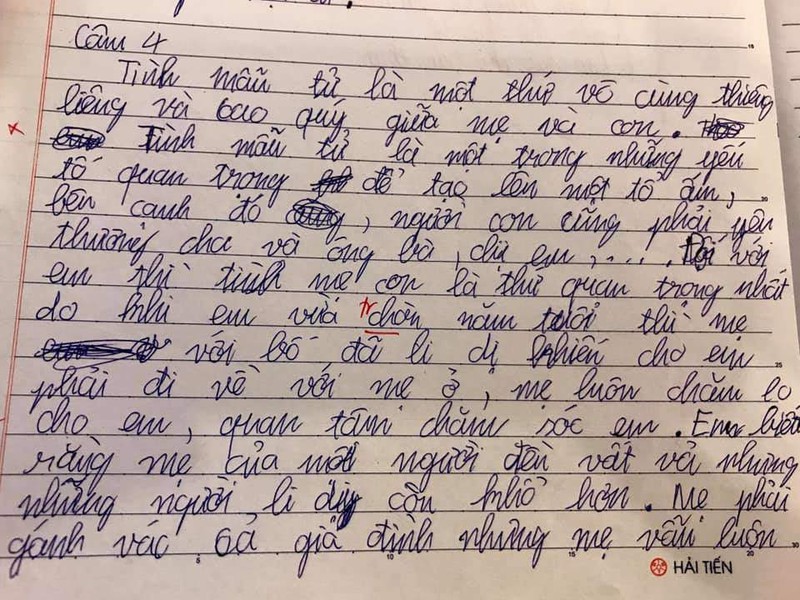 Câu 4
Tình mẫu tử là một thứ vô cùng thiêng
liêng và bao quý giữa mẹ và con.
Tình mẫu tử là một trong những yếu
tố quan trong để tạo lên một tổ ấm,
bên cạnh đó, người con cũng phải yêu
thương cha và ông bà, chị em,.... Đối với
em thì tình mẹ con là thứ quan trọng nhất
do khi em vừa tròn năm tuổi thì mẹ
với bố đã li dị khiến cho em
phải đi về với mẹ ở, mẹ luôn chăm lo
cho em, quan tâm chăm sóc em. Em biết
rằng mẹ của mọi người đều vất vả nhưng
những người li dị còn khổ hơn. Mẹ phải
gánh vác cả gia đình nhưng mẹ vẫn luôn
HẢI TIẾN